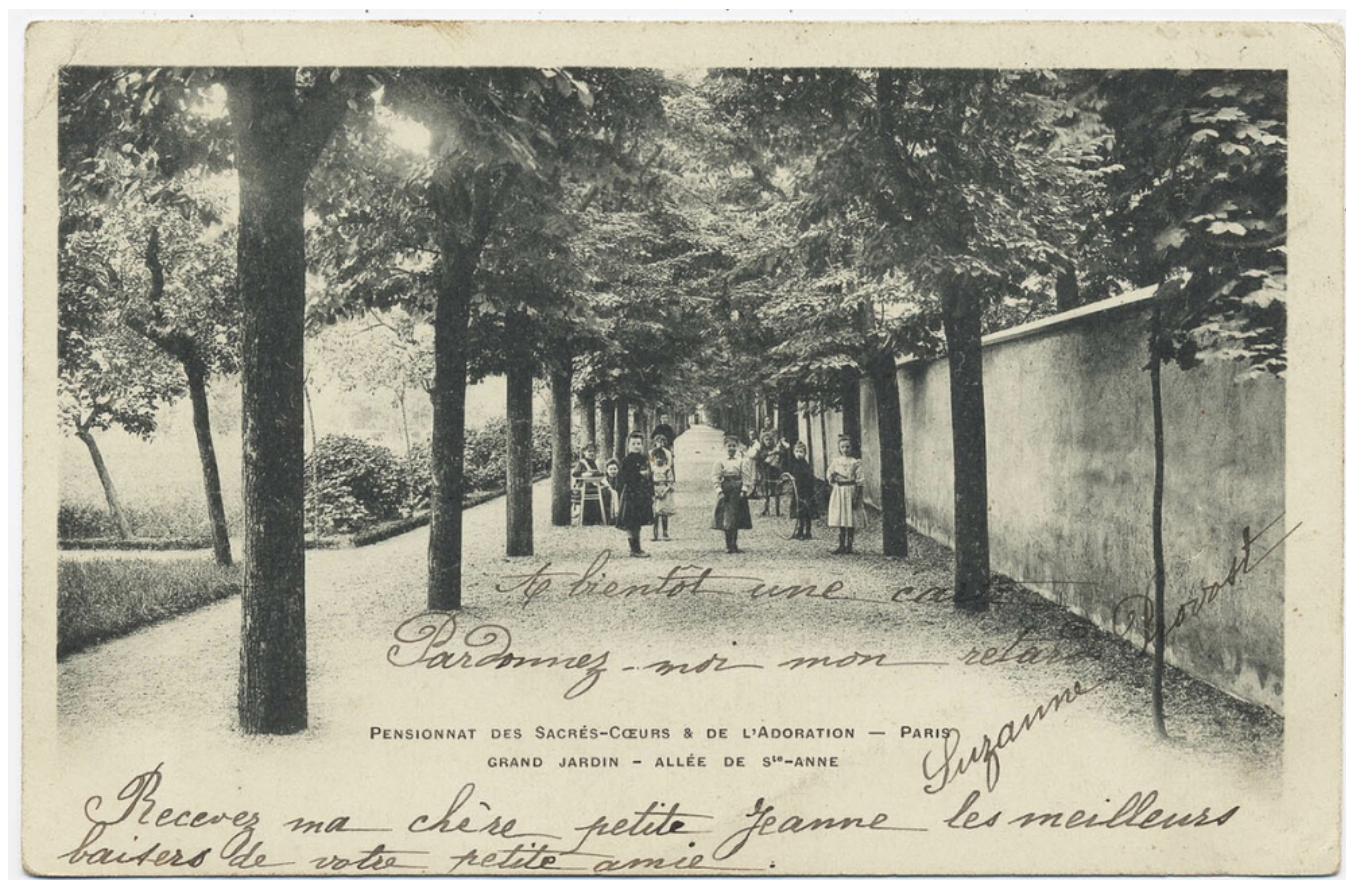 A bientôt une
Pardonnez-moi mon retard
PENSIONNAT DES SACRÉS-CŒURS & DE L'ADORATION — PARIS
GRAND JARDIN - ALLÉE DE Ste-ANNE
Suzanne
Recevez ma chère petite Jeanne les meilleurs
baisers de votre petite amie.